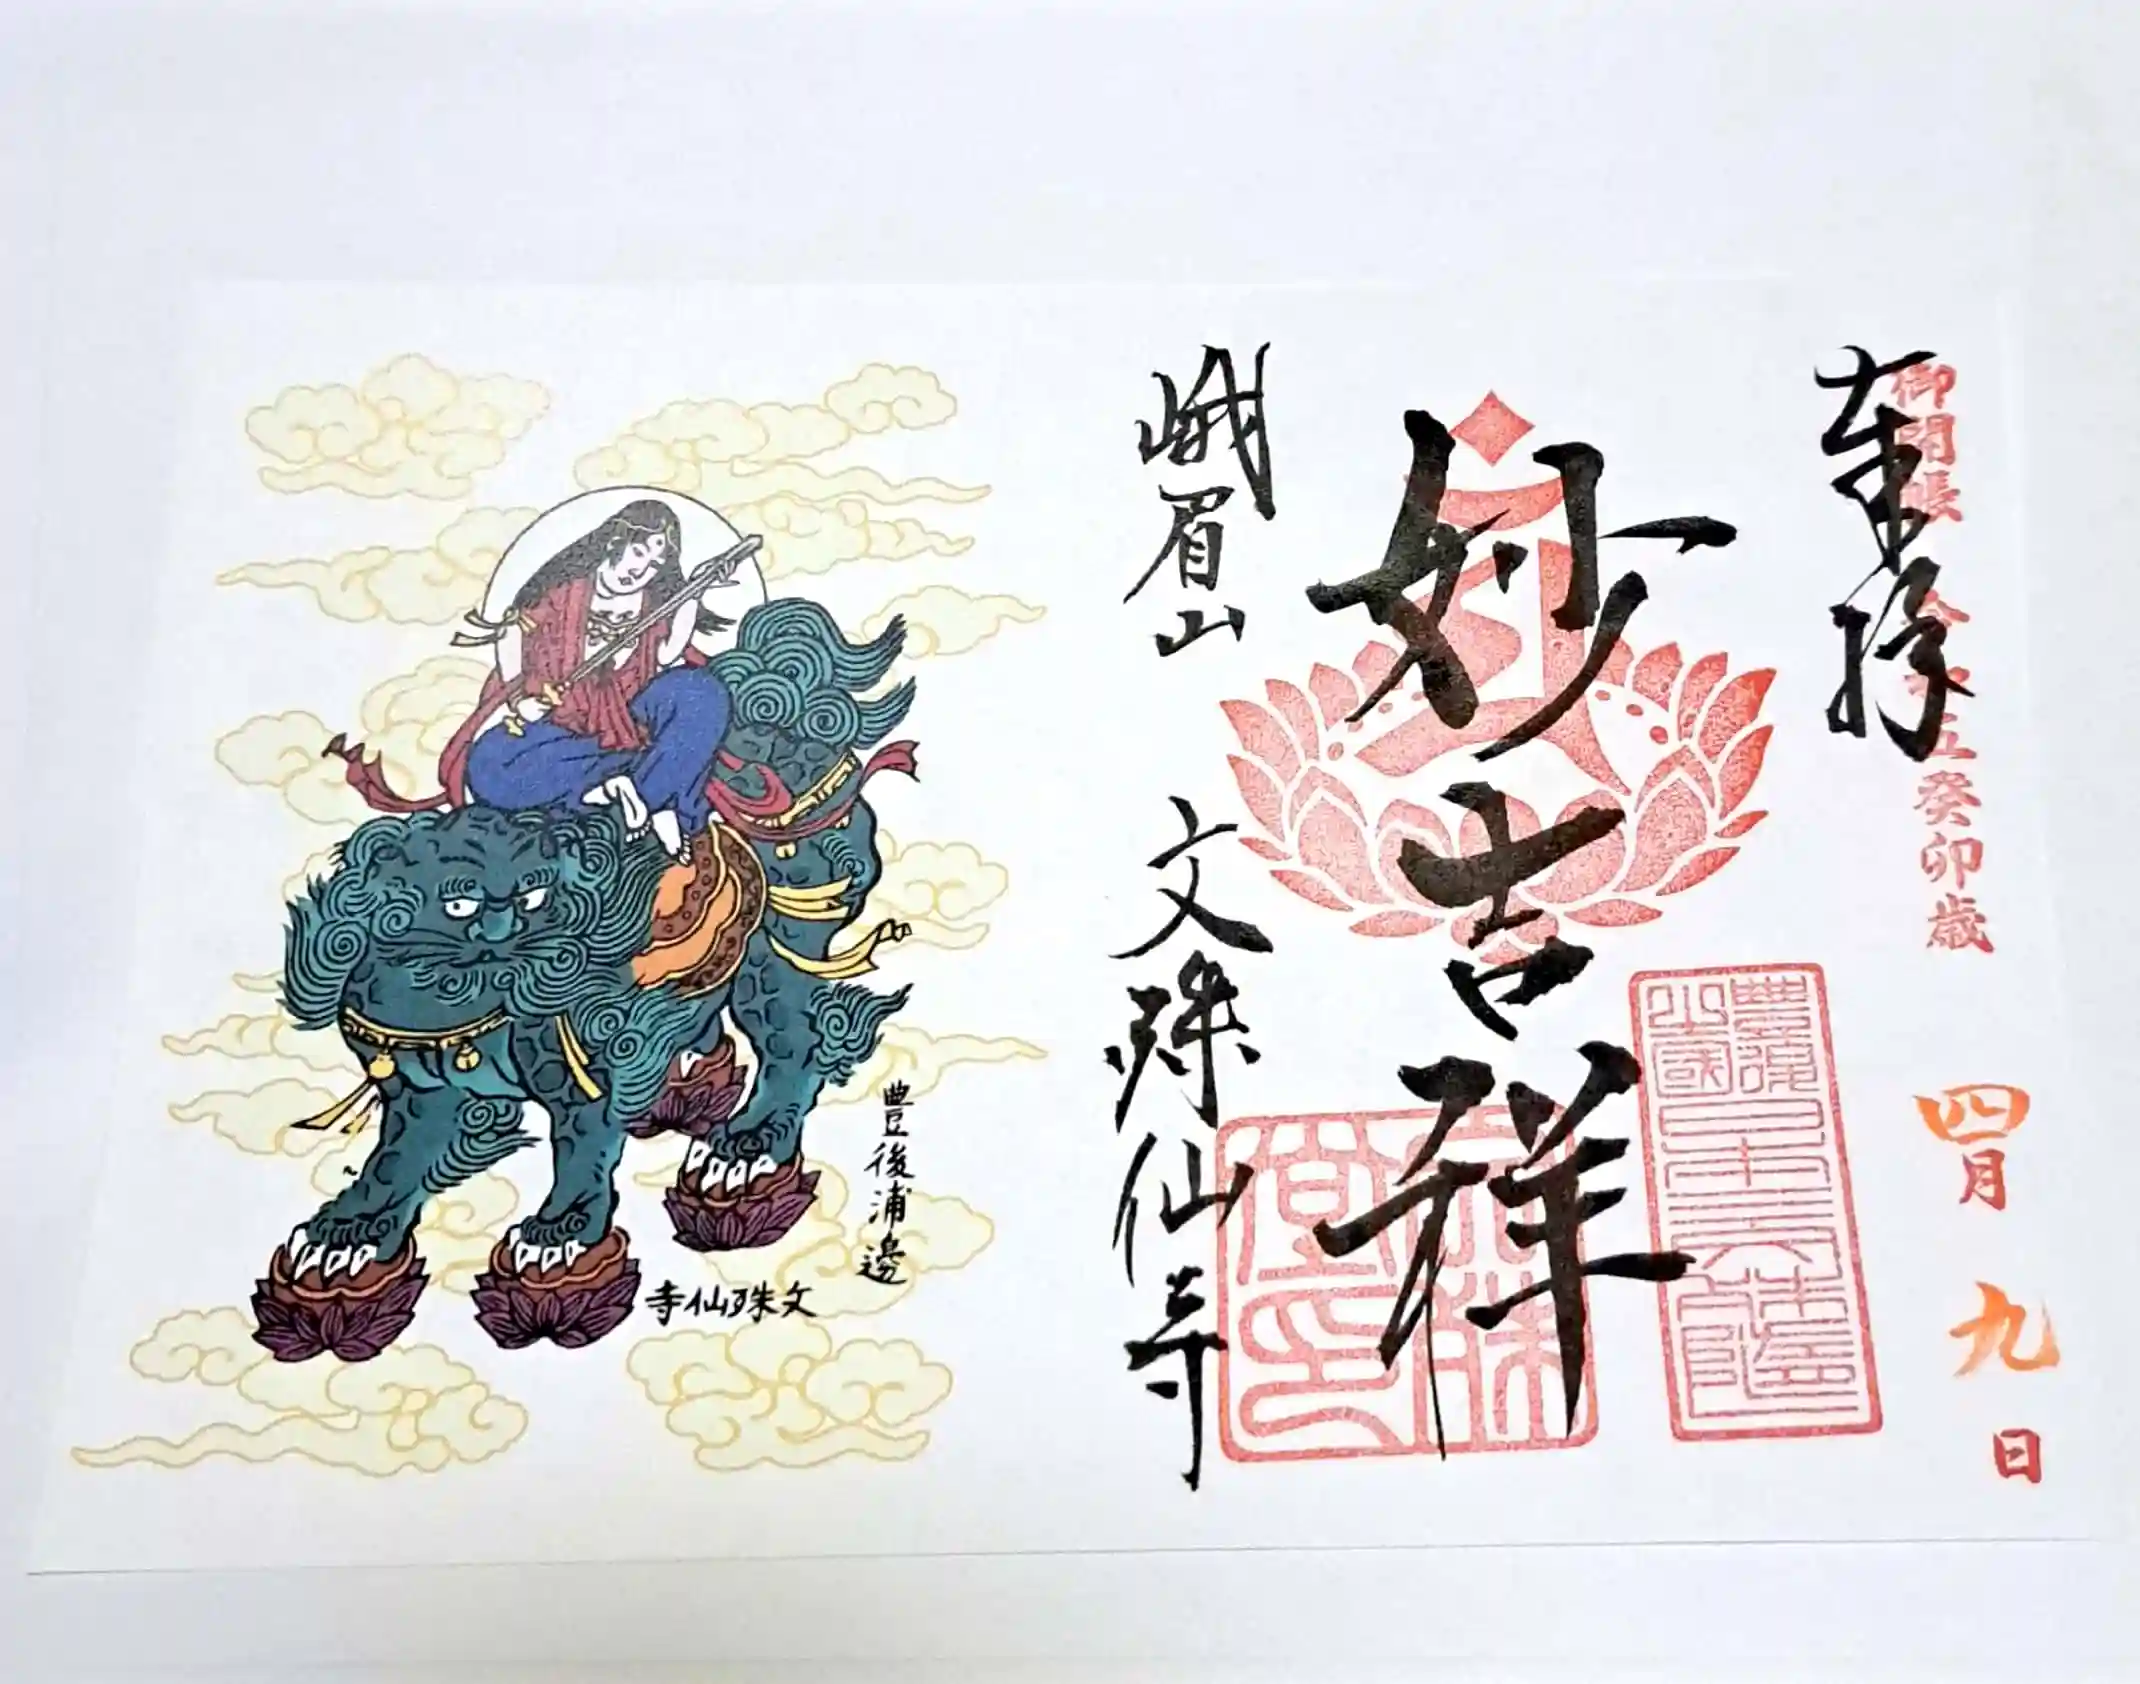 奉拝
御開帳 令和五癸卯歳
四月九日
妙吉祥
峨眉山 文殊仙寺
豊後浦邊
文殊仙寺